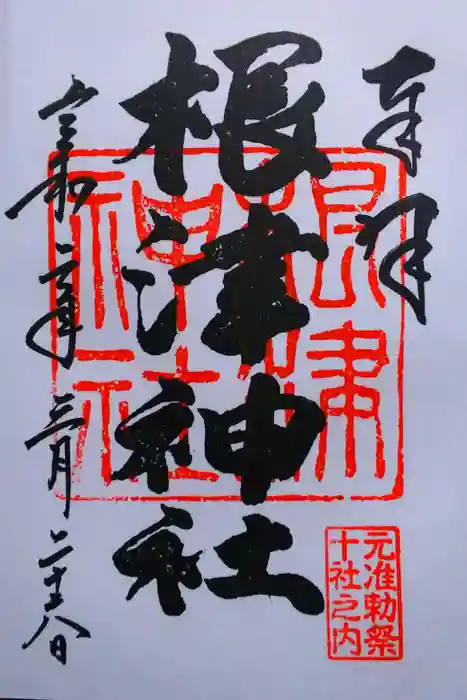 奉拝
根津神社
根津
神社
元准勅祭
十社之内
令和二年三月二十八日